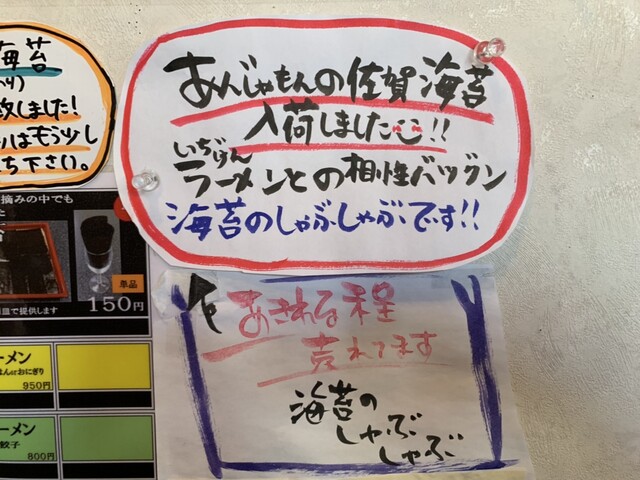 海苔
致しました!
はもう少し
ち下さい。
あんじゃもんの佐賀海苔
入荷しました!!
いちげん
ラーメンとの相性バツグン
海苔のしゃぶしゃぶです!!
摘みの中でも
単品
150円
皿で提供します
ーメン
はんorおにぎり
950円
ーメン
餃子
800円
あきれる程
売れてます
海苔の
しゃぶ
しゃぶ